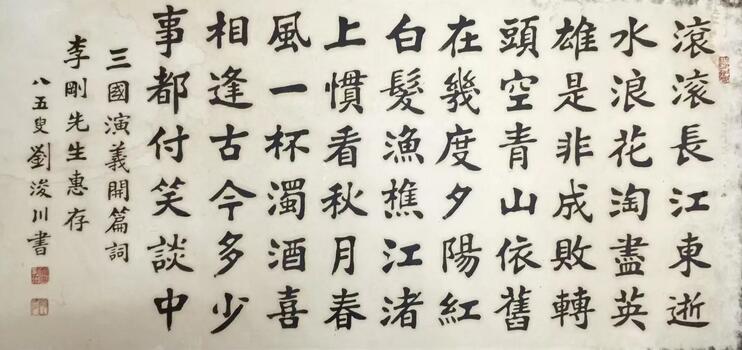 滾滾長江東逝
水浪花淘盡英
雄是非成敗轉
頭空青山依舊
在幾度夕陽紅
白髮漁樵江渚
上慣看秋月春
風一杯濁酒喜
相逢古今多少
事都付笑談中
三國演義開篇詞
李剛先生惠存
八五叟劉浚川書